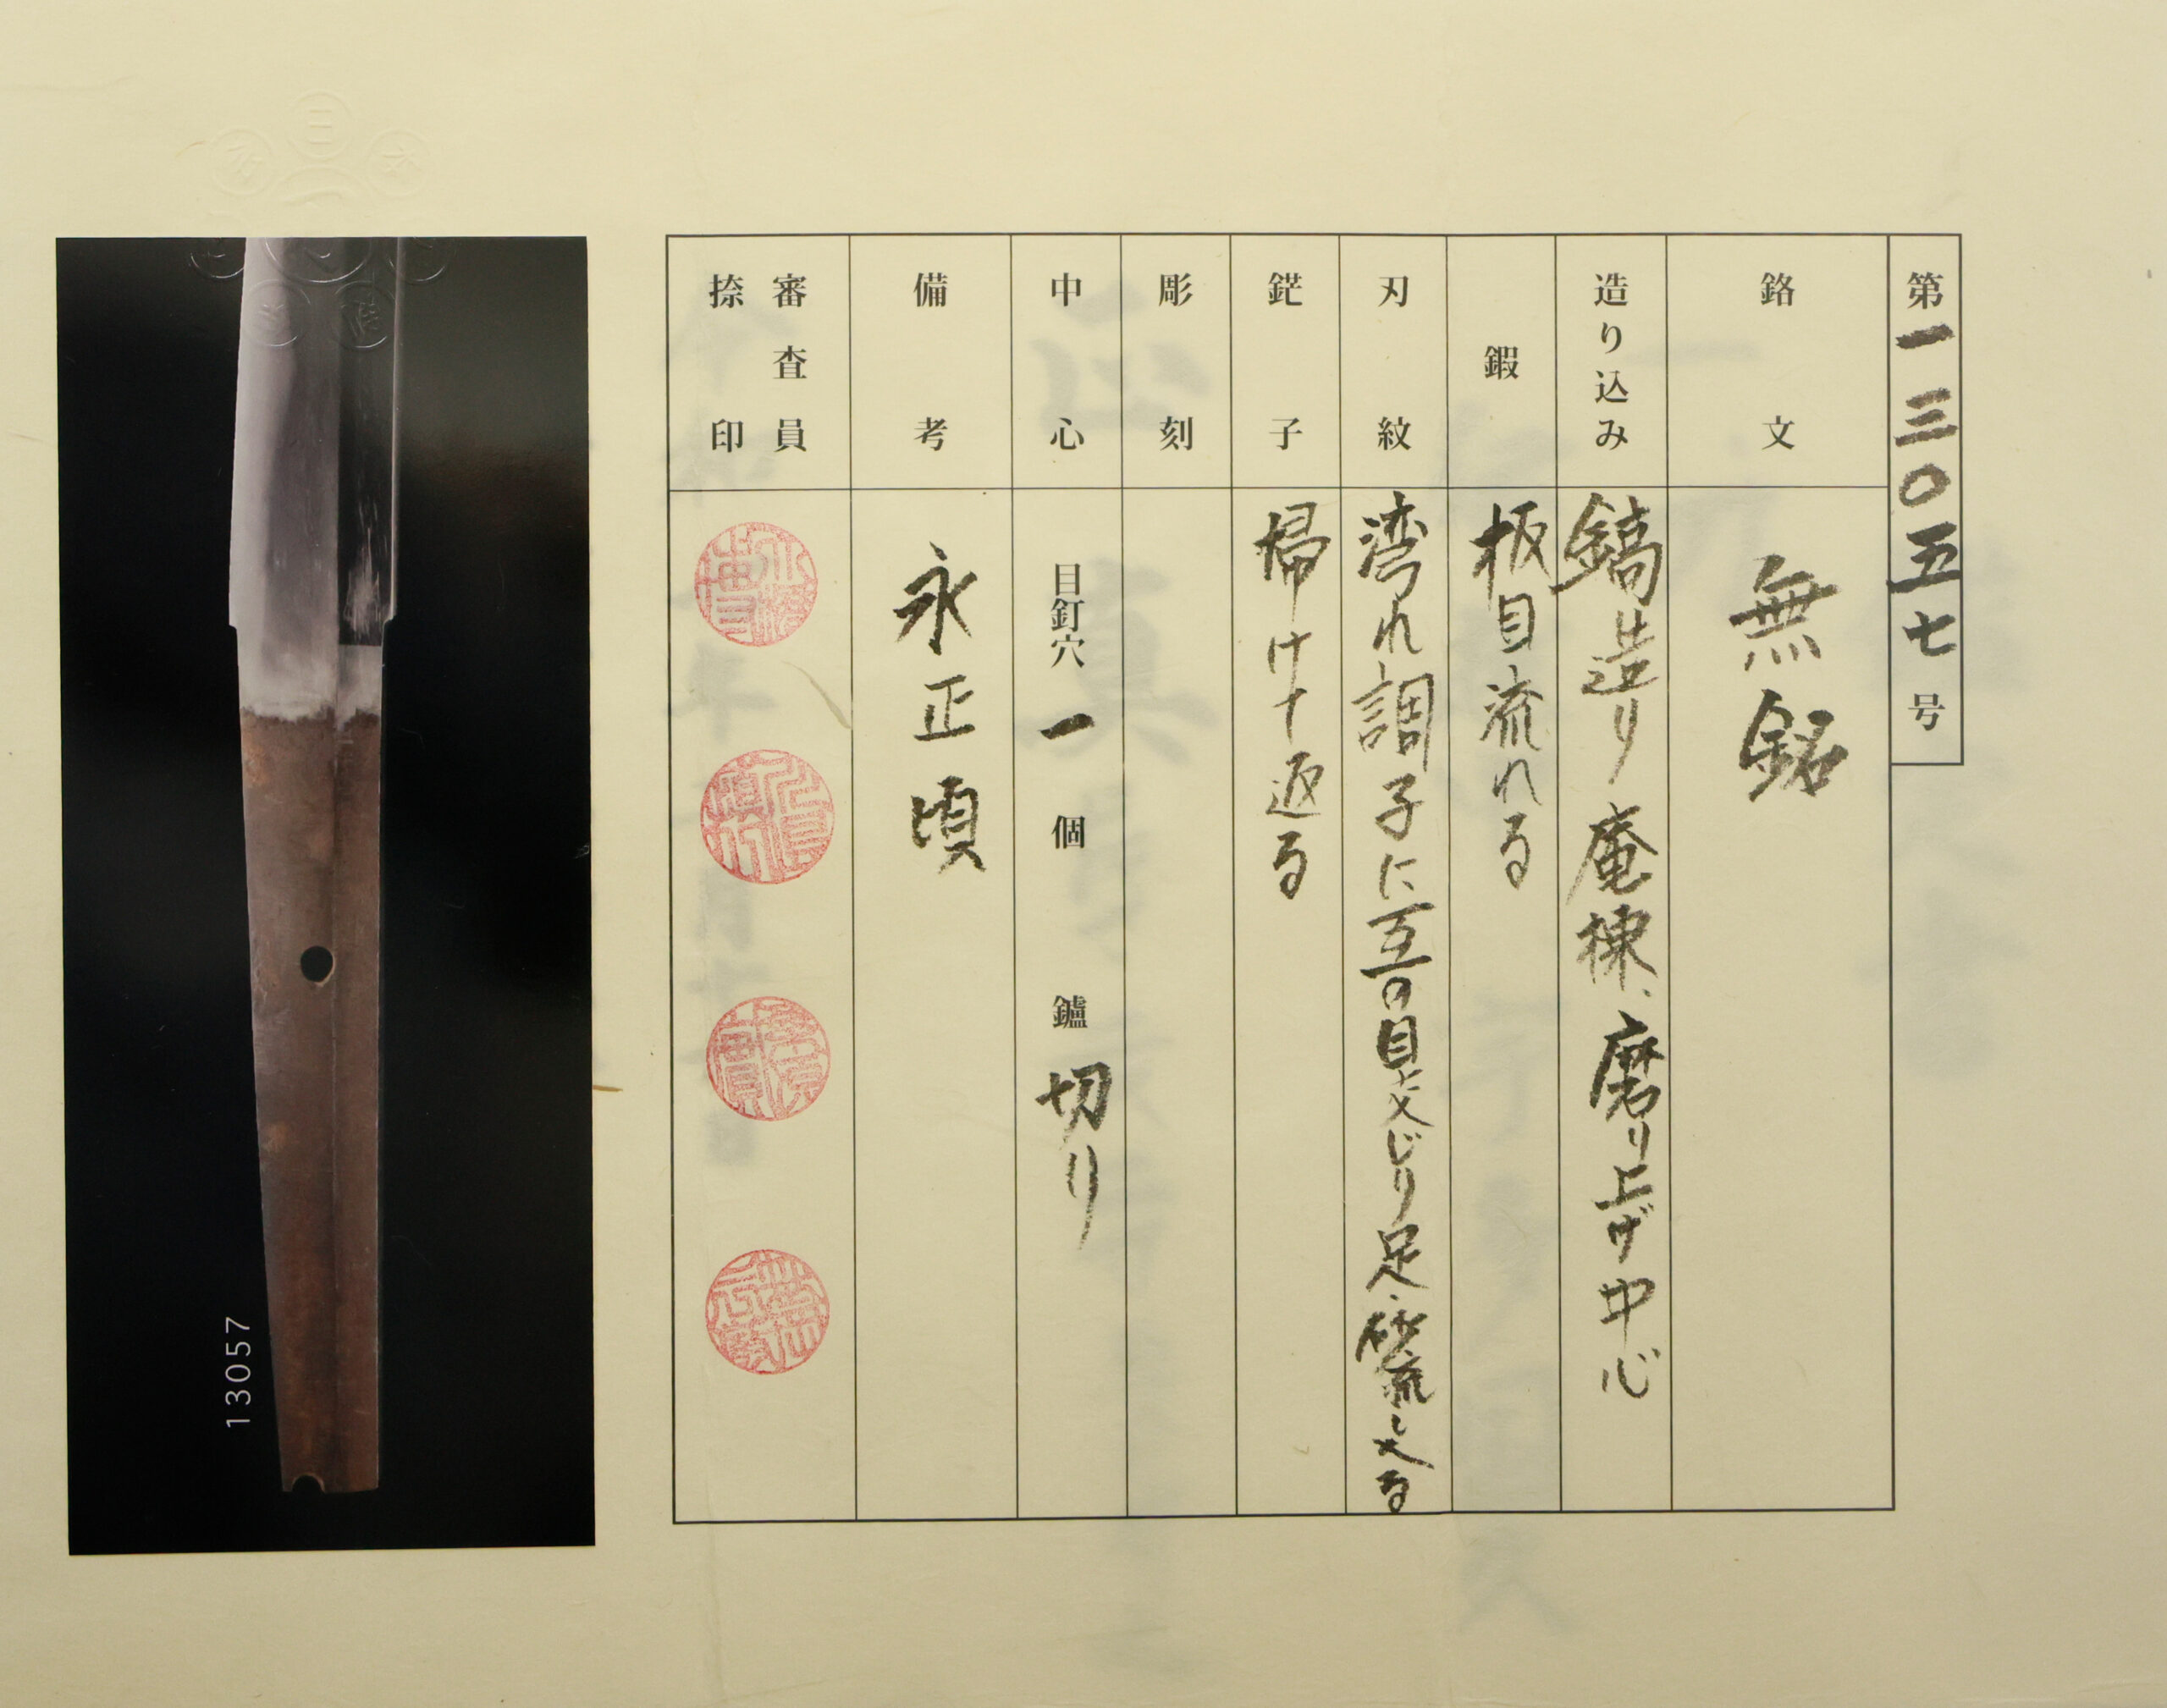 第一三〇五七号
銘文 無銘
造り込み 鎬造り 庵棟、磨り上げ中心
鍛 板目流れる
刃紋 湾れ調子に互の目交じり足、砂流し入る
鋩子 掃け十返る
彫刻
中心 目釘穴 一 個 鑢 切り
備考 永正頃
審査員
捺印
13057